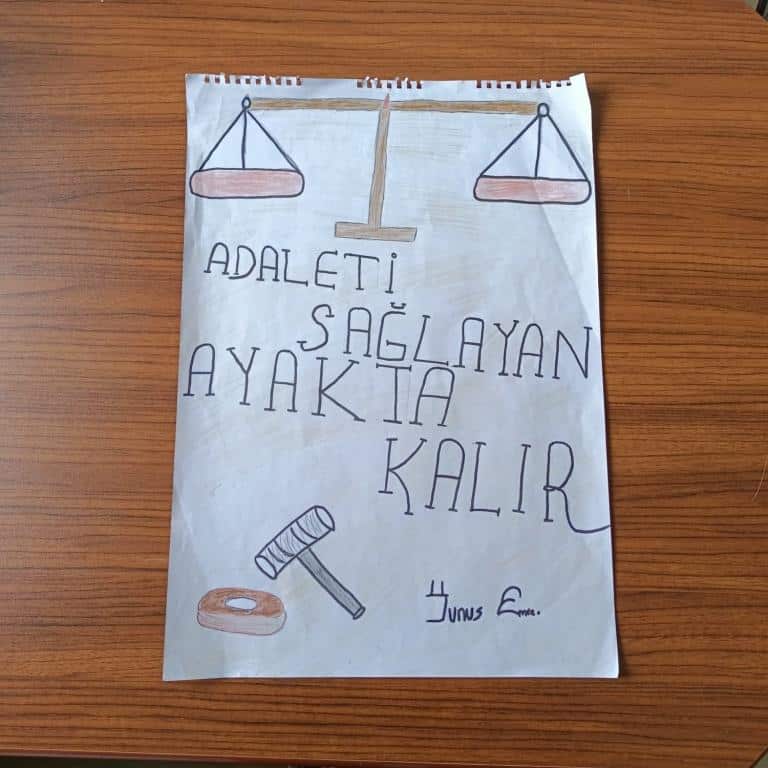 ADALETİ
SAĞLAYAN
AYAKTA
KALIR
Yunus Emre.